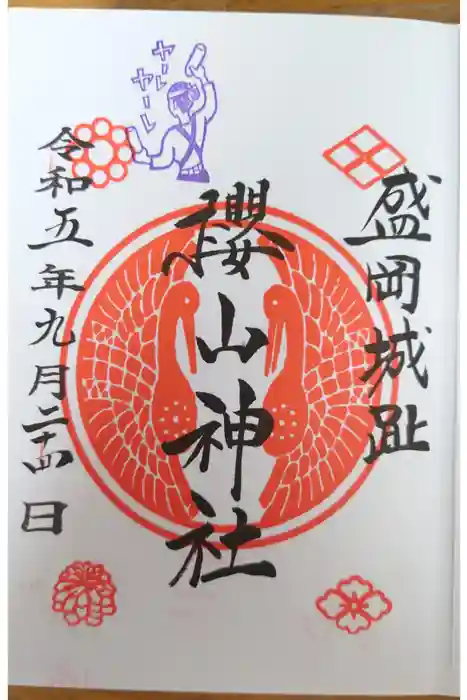 盛岡城趾
櫻山神社
令和五年九月二十四日
ヤーレ
ヤーレ